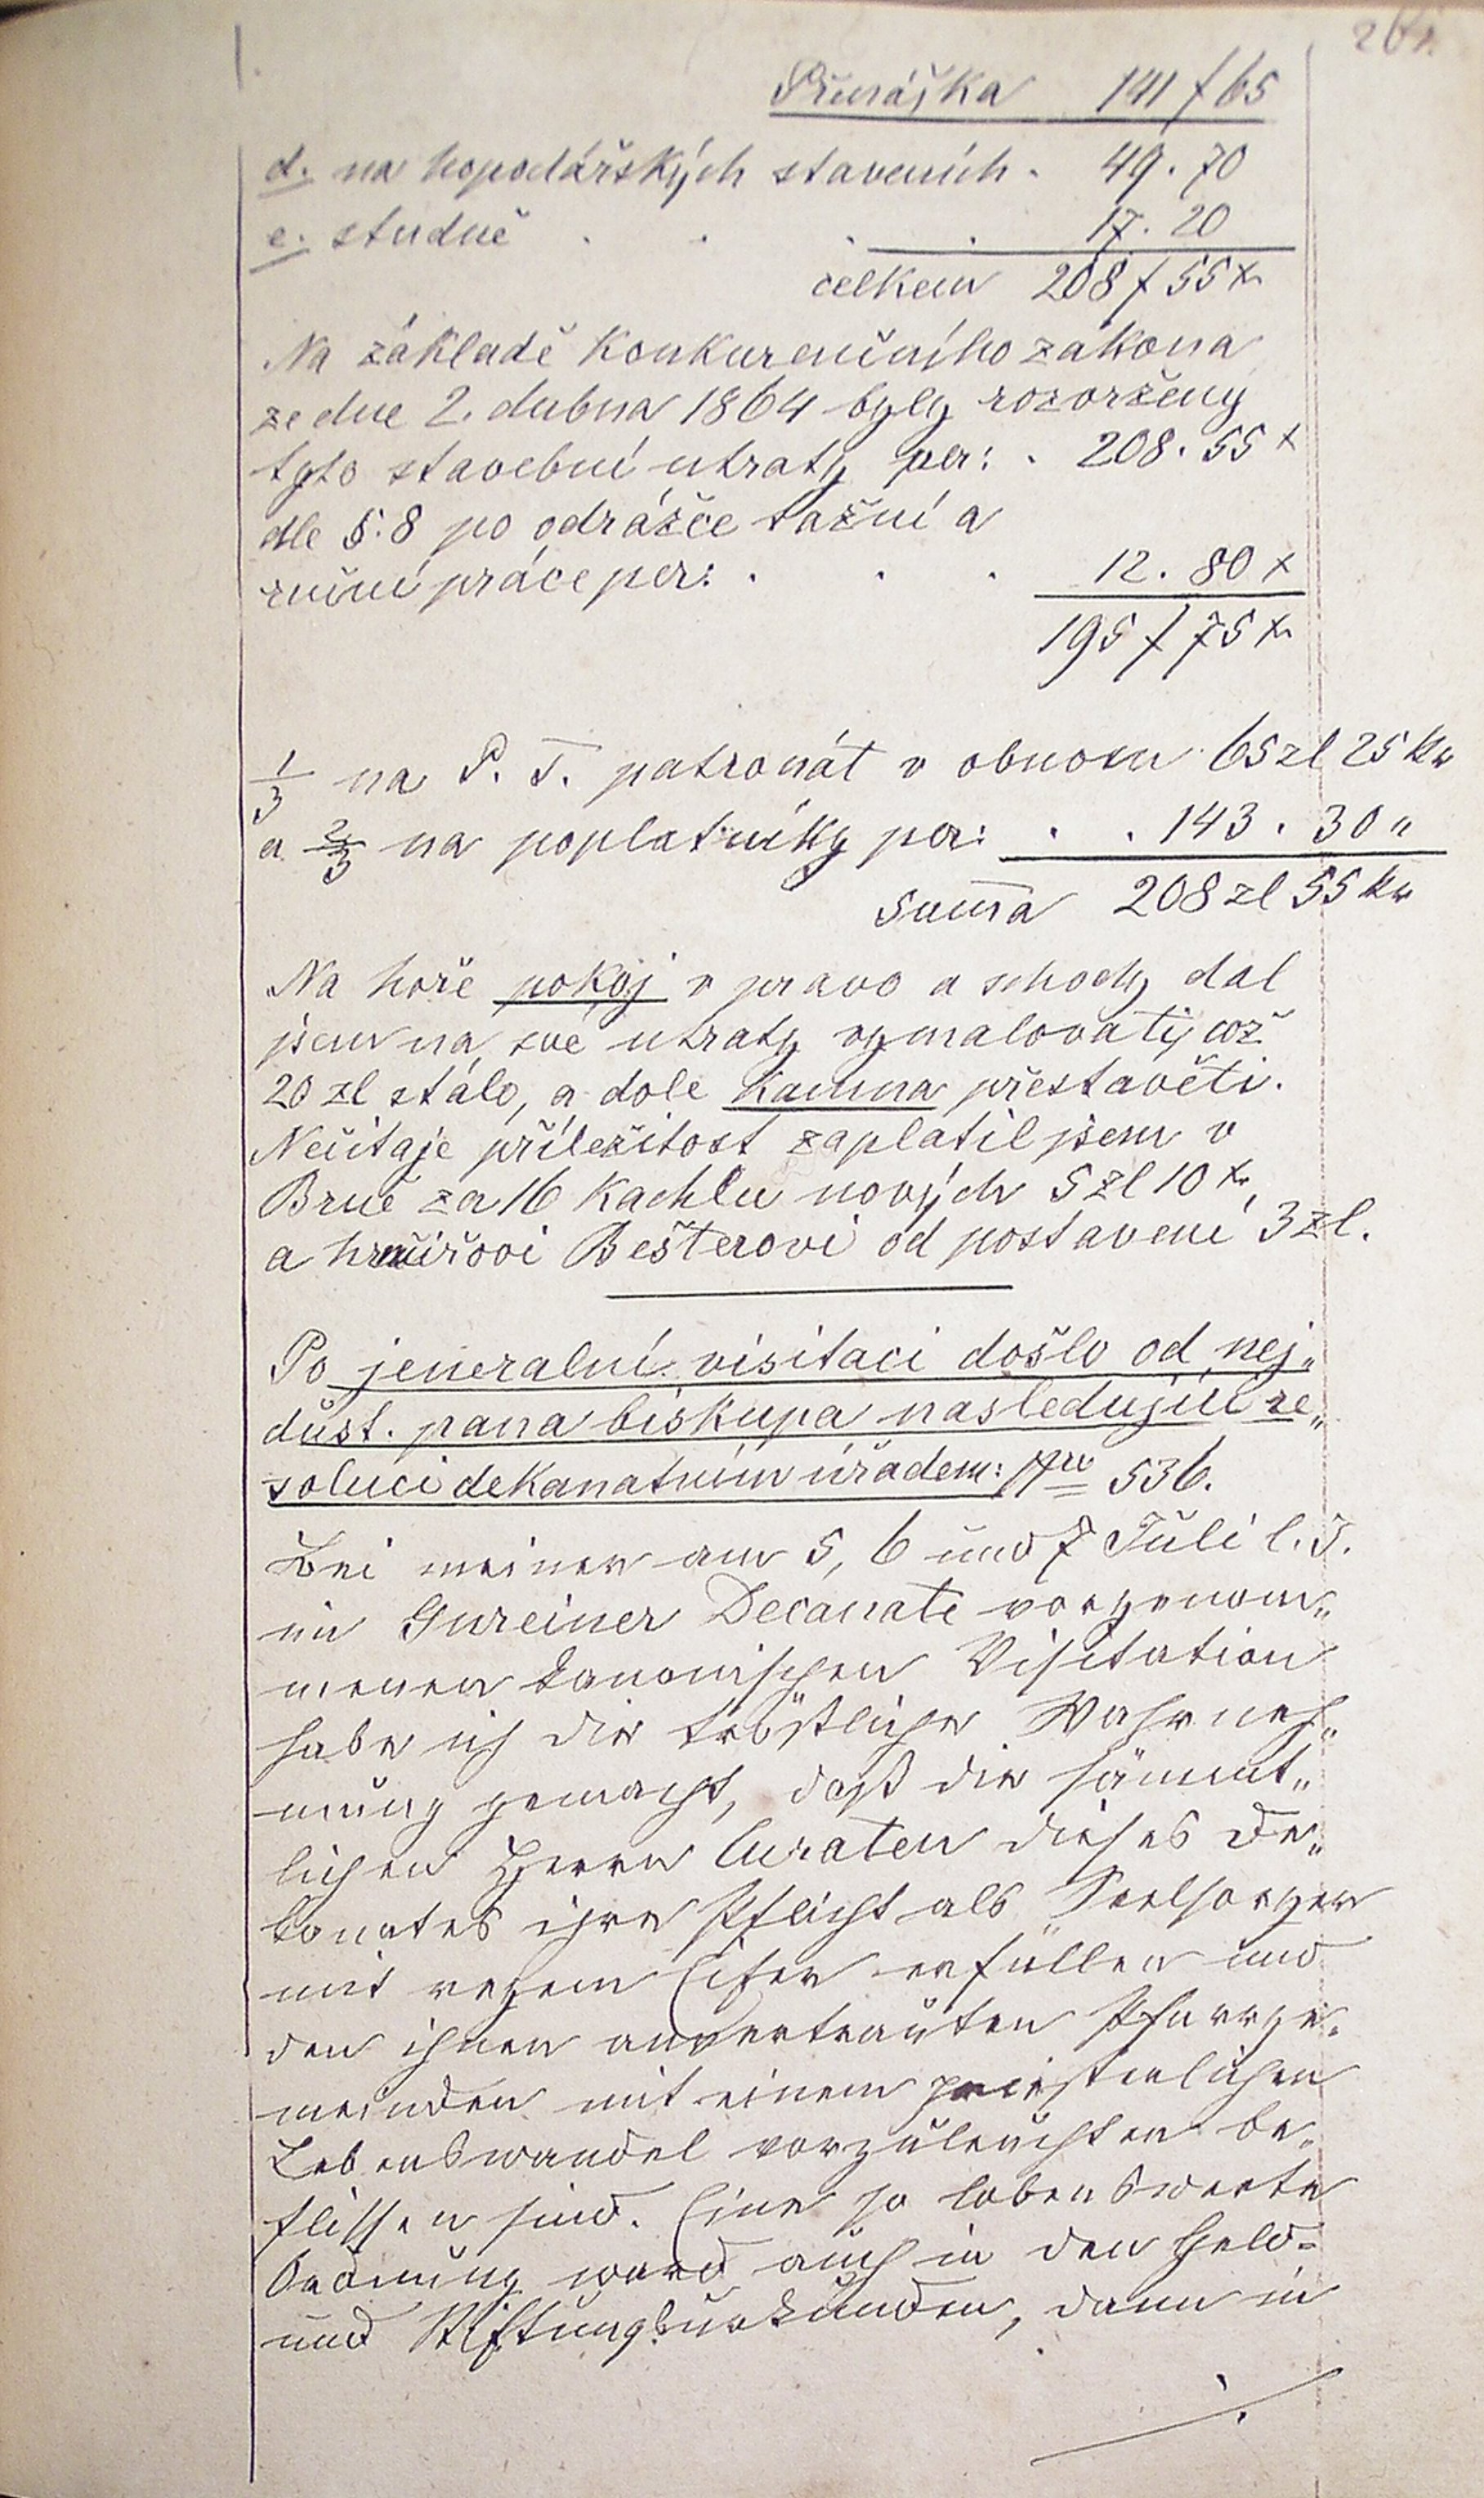 Přenáška 141 f 65
d. na hopodářských staveních . 49 . 70
e. studně . . . . 17 . 20
celkem 208 f 55 x
Na základě konkurenčního zákona
ze dne 2. dubna 1864 byly rozvrženy
tyto stavební útraty per: . 208 . 55 x
dle §. 8 po odrážče tažní a
ruční práce per: . . . 12 . 80 x
195 f 75 x
1/3 na P. T. patronát v obnosu 65 zl 25 kr
a 2/3 na poplatníky per: . . 143 . 30 "
Suma 208 zl 55 kr
Na hoře pokoj v pravo a schody dal
jsem na své útraty vymalovati, což
20 zl stálo, a dole kamna přestavěti.
Nečítaje příležitost zaplatil jsem v
Brně za 16 kachlů nových 5 zl 10 x
a hrnčířovi Bešterovi od postavení 3 zl.
Po jenerální visitaci došlo od nej„
dúst. pana biskupa následující re„
soluci dekanatním úřadem: Nro 536.
Bei meiner am 5, 6 und 7 Juli l. J.
im Gureiner Decanate vorgenom„
menen kanonischen Visitation
habe ich die tröstliche Wahrneh„
mung gemacht, daß die sämmt„
lichen Herrn Curaten dieses De„
kanates ihre Pflicht als Seelsorger
mit regem Eifer erfüllen und
den ihnen anvertrauten Pfarrge„
meinden mit einem priesterlichen
Lebenswandel vorzuleuchten be„
flissen sind. Eine so lobenswerte
Ordnung ward auch in den Geld-
und Stiftungsurkunden, dann in
./.